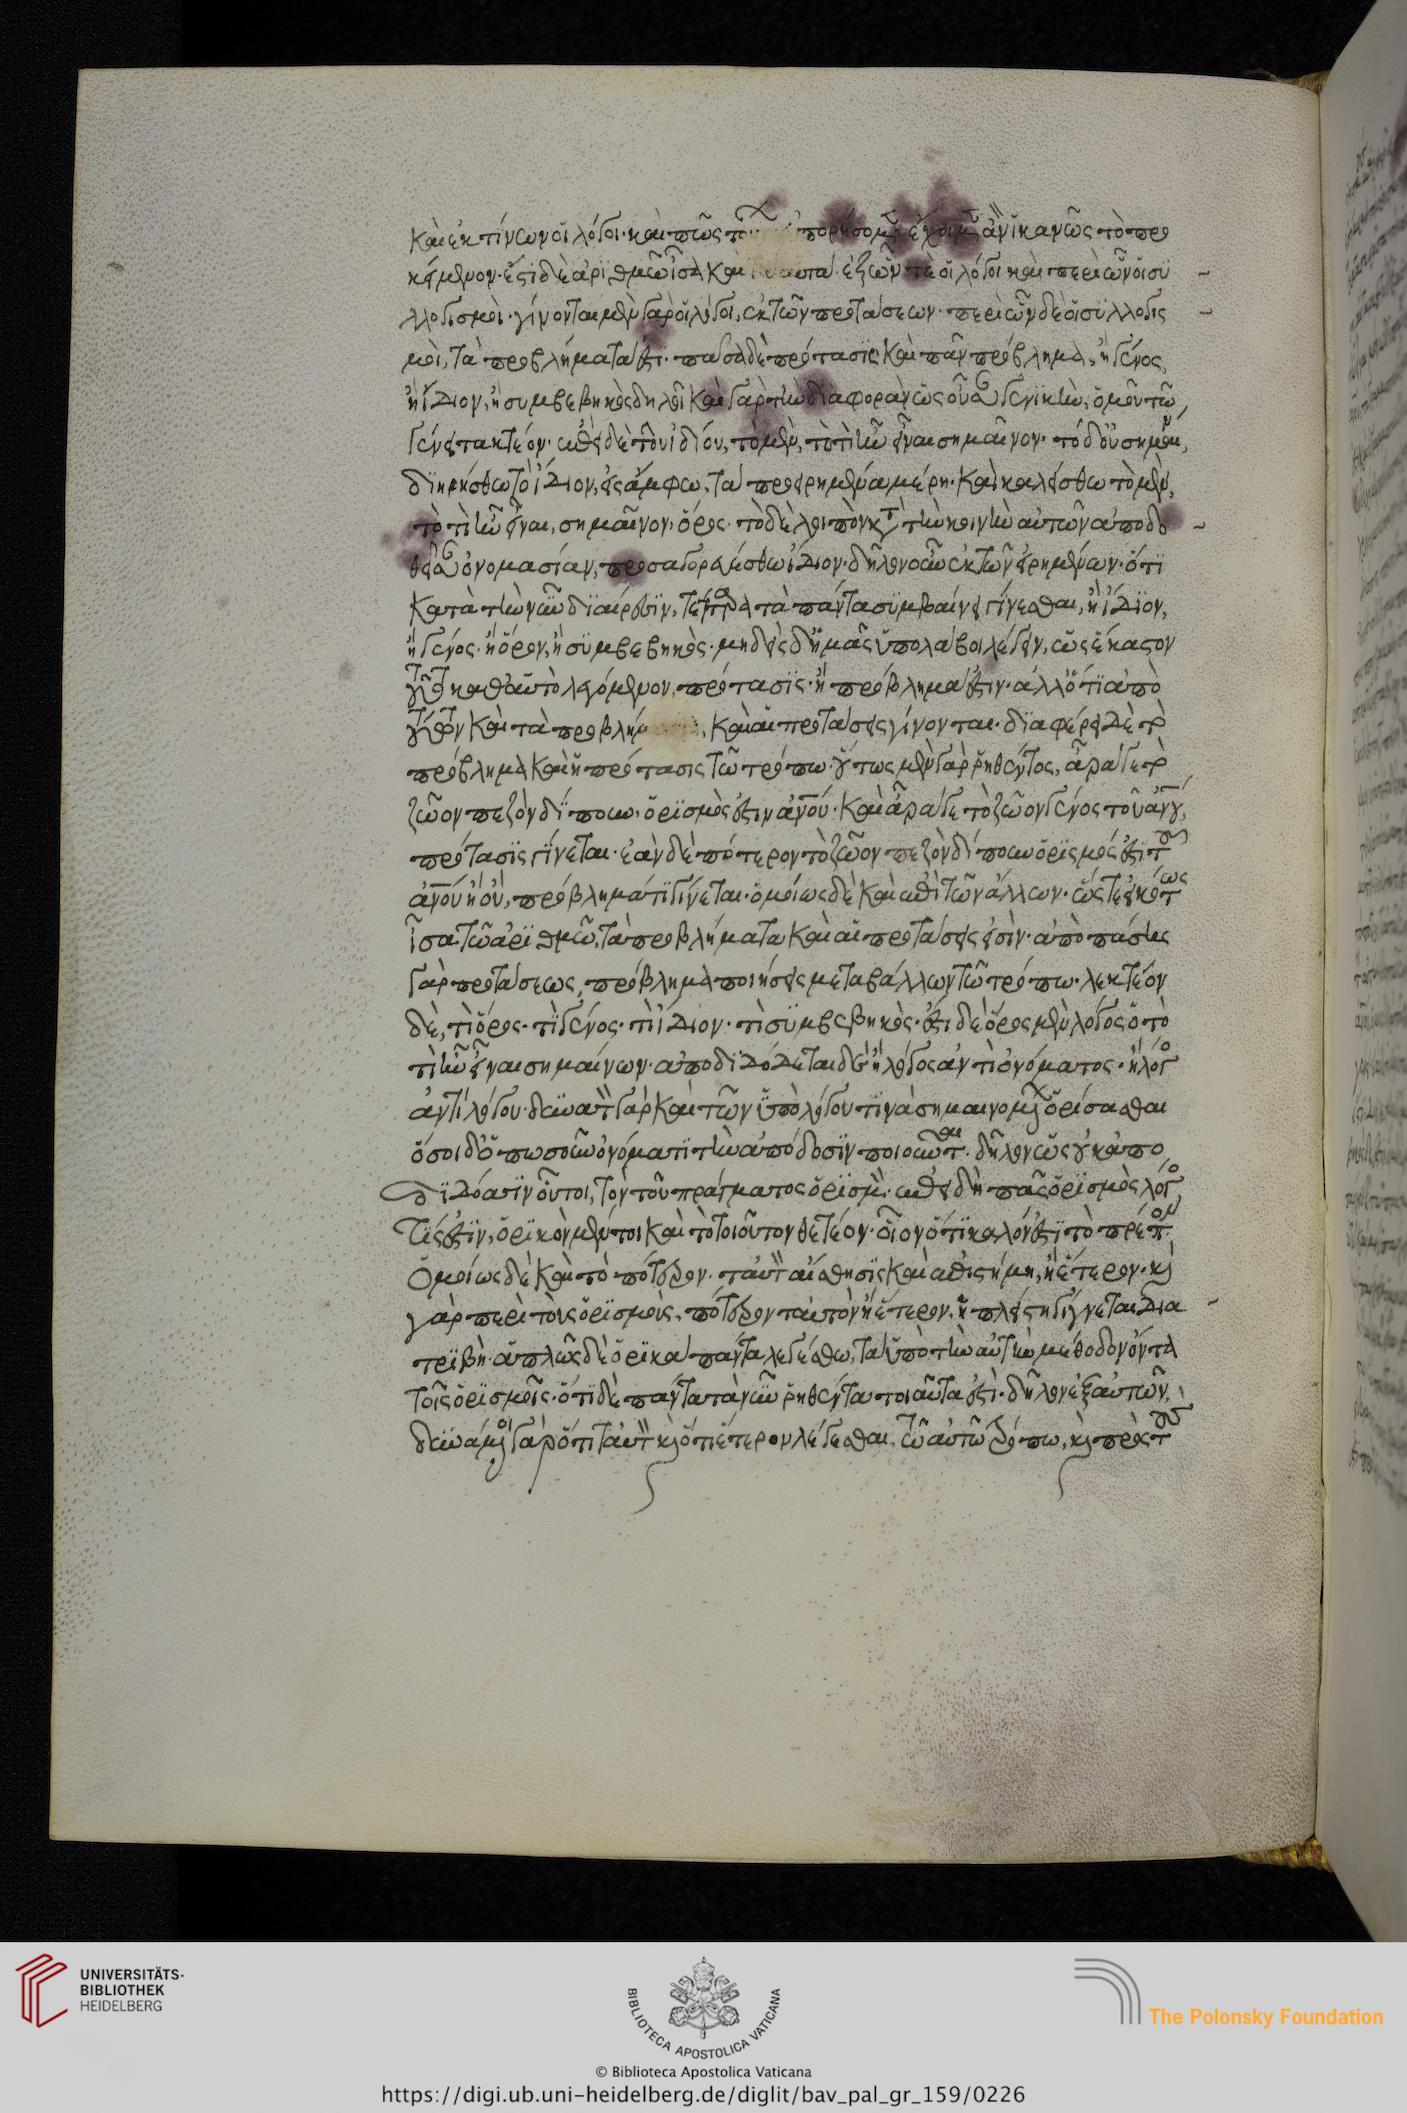 καὶ ἐκ τίνων οἱ λόγοι· καὶ πῶς τού εὐπορήσομεν ἔχοιμεν ἂν ἱκανῶς τὸ προ
κείμενον· ἔστι δὲ ἀριθμῶ ἴσα καὶ τὰ αυτά· ἐξ ὧν τὲ οἱ λόγοι καὶ περὶ ὧν οἱ συ
λλογισμοί· γίνονται μὲν γὰρ οἱ λόγοι, ἐκ τῶν προτάσεων· περὶ ὧν δὲ οἱ συλλογις
μοὶ, τὰ προβλήματά ἐστι· πᾶσα δὲ πρότασις καὶ πᾶν πρόβλημα, ἢ γένος,
ἢ ἴδιον, ἢ συμβεβηκὸς δηλοῖ καὶ γὰρ τὴν διαφορὰν ὡς οὖσαν γενικὴν, ὁμοῦ τῶ
γένει τακτέον· ἐπεὶ δὲ τοῦ ἰδίου, τὸ μὲν, τὸ τί ἦν εἶναι σημαῖνον· τὸ δ' οὐ σημαῖνον,
διηρήσθω τὸ ἴδιον, εἰς ἄμφω, τὰ προειρημένα μέρη· καὶ καλείσθω τὸ μὲν,
τὸ τί ἦν εἶναι, σημαῖνον· ὅρος· τὸ δὲ λοιπὸν κατὰ τὴν κοινὴν αὐτῶν ἀποδο
θεῖσαν ὀνομασίαν, προσαγορευέσθω ἴδιον· δῆλον οὖν ἐκ τῶν εἰρημένων· ὅτι
κατὰ τὴν νῦν διαίρεσιν, τέτταρα τὰ πάντα συμβαίνει γίνεσθαι, ἢ ἴδιον,
ἢ γένος· ἢ ὅρον, ἢ συμβεβηκός· μηδεὶς δ' ἡμᾶς ὑπολάβοι λέγειν, ὡς ἕκαστον
τούτων καθ' αὑτὸ λεγόμενον, πρότασις· ἢ πρόβλημά ἐστιν· ἀλλ' ὅτι ἀπὸ
τούτων καὶ τὰ προβλήμ , καὶ αἱ προτάσεις γίνονται· διαφέρει δὲ τὸ
πρόβλημα καὶ ἡ πρότασις τῶ τρόπω· οὕτως μὲν γὰρ ῥηθέντος, ἆρά γε τὸ
ζῶον πεζὸν δίπουν· ὁρισμός ἐστιν ἀνού· καὶ ἆρά γε τὸ ζῶον γένος τοῦ ἀνού,
πρότασις γίνεται· ἐὰν δὲ πότερον τὸ ζῶον πεζὸν δίπουν ὁρισμός ἐστι τοῦ
ἀνού ἢ οὔ, πρόβλημά τι γίνεται· ὁμοίως δὲ καὶ ἐπὶ τῶν ἄλλων· ὥστε εἰκότως
ἴσα τῶ ἀριθμῶ, τὰ προβλήματα καὶ αἱ προτάσεις εἰσίν· ἀπὸ πάσης
γὰρ προτάσεως, πρόβλημα ποιήσεις μεταβάλλων τῶ τρόπω· λεκτέον
δὲ, τί ὅρος· τί γένος· τί ἴδιον· τί συμβεβηκός· ἔστι δὲ ὅρος μὲν λόγος ὁ τὸ
τί ἦν εἶναι σημαίνων· ἀποδίδοται δὲ ἢ λόγος ἀντὶ ὀνόματος· ἢ λόγος
ἀντὶ λόγου· δυνατὸν γὰρ καὶ τῶν ὑπὸ λόγου τινὰ σημαινομένων ὁρίσασθαι
ὅσοι δ' ὁπωσοῦν ὀνόματι τὴν ἀπόδοσιν ποιοῦνται· δῆλον ὡς οὐκ ἀπο
διδόασιν οὗτοι, τὸν τοῦ πράγματος ὁρισμόν· ἐπειδὴ πᾶς ὁρισμὸς λόγος
τίς ἐστιν, ὁρικὸν μέντοι καὶ τὸ τοιοῦτον θετέον· οἷον ὅτι καλόν ἐστι τὸ πρέπον·
ὁμοίως δὲ καὶ τὸ πότερον· ταὐτὸν αἴσθησις καὶ ἐπιστήμη, ἢ ἕτερον· καὶ
γὰρ περὶ τοὺς ὁρισμοὺς, πότερον ταὐτὸν ἢ ἕτερον, ἡ πλείστη γίγνεται δια
τριβή· ἁπλῶς δὲ ὁρικὰ πάντα λεγέσθω, τὰ ὑπὸ τὴν αὐτὴν μέθοδον ὄντα
τοῖς ὁρισμοῖς· ὅτι δὲ πάντα τὰ νῦν ῥηθέντα τοιαῦτά ἐστι· δῆλον ἐξ αὐτῶν,
δυνάμενοι γὰρ ὅτι ταὐτὸν καὶ ὅτι ἕτερον λέγεσθαι, τῶ αὐτῶ τρόπω, καὶ πρὸς τοὺς
UNIVERSITÄTS-
BIBLIOTHEK
HEIDELBERG
BIBLIOTECA APOSTOLICA VATICANA
The Polonsky Foundation
© Biblioteca Apostolica Vaticana
https://digi.ub.uni-heidelberg.de/diglit/bav_pal_gr_159/0226